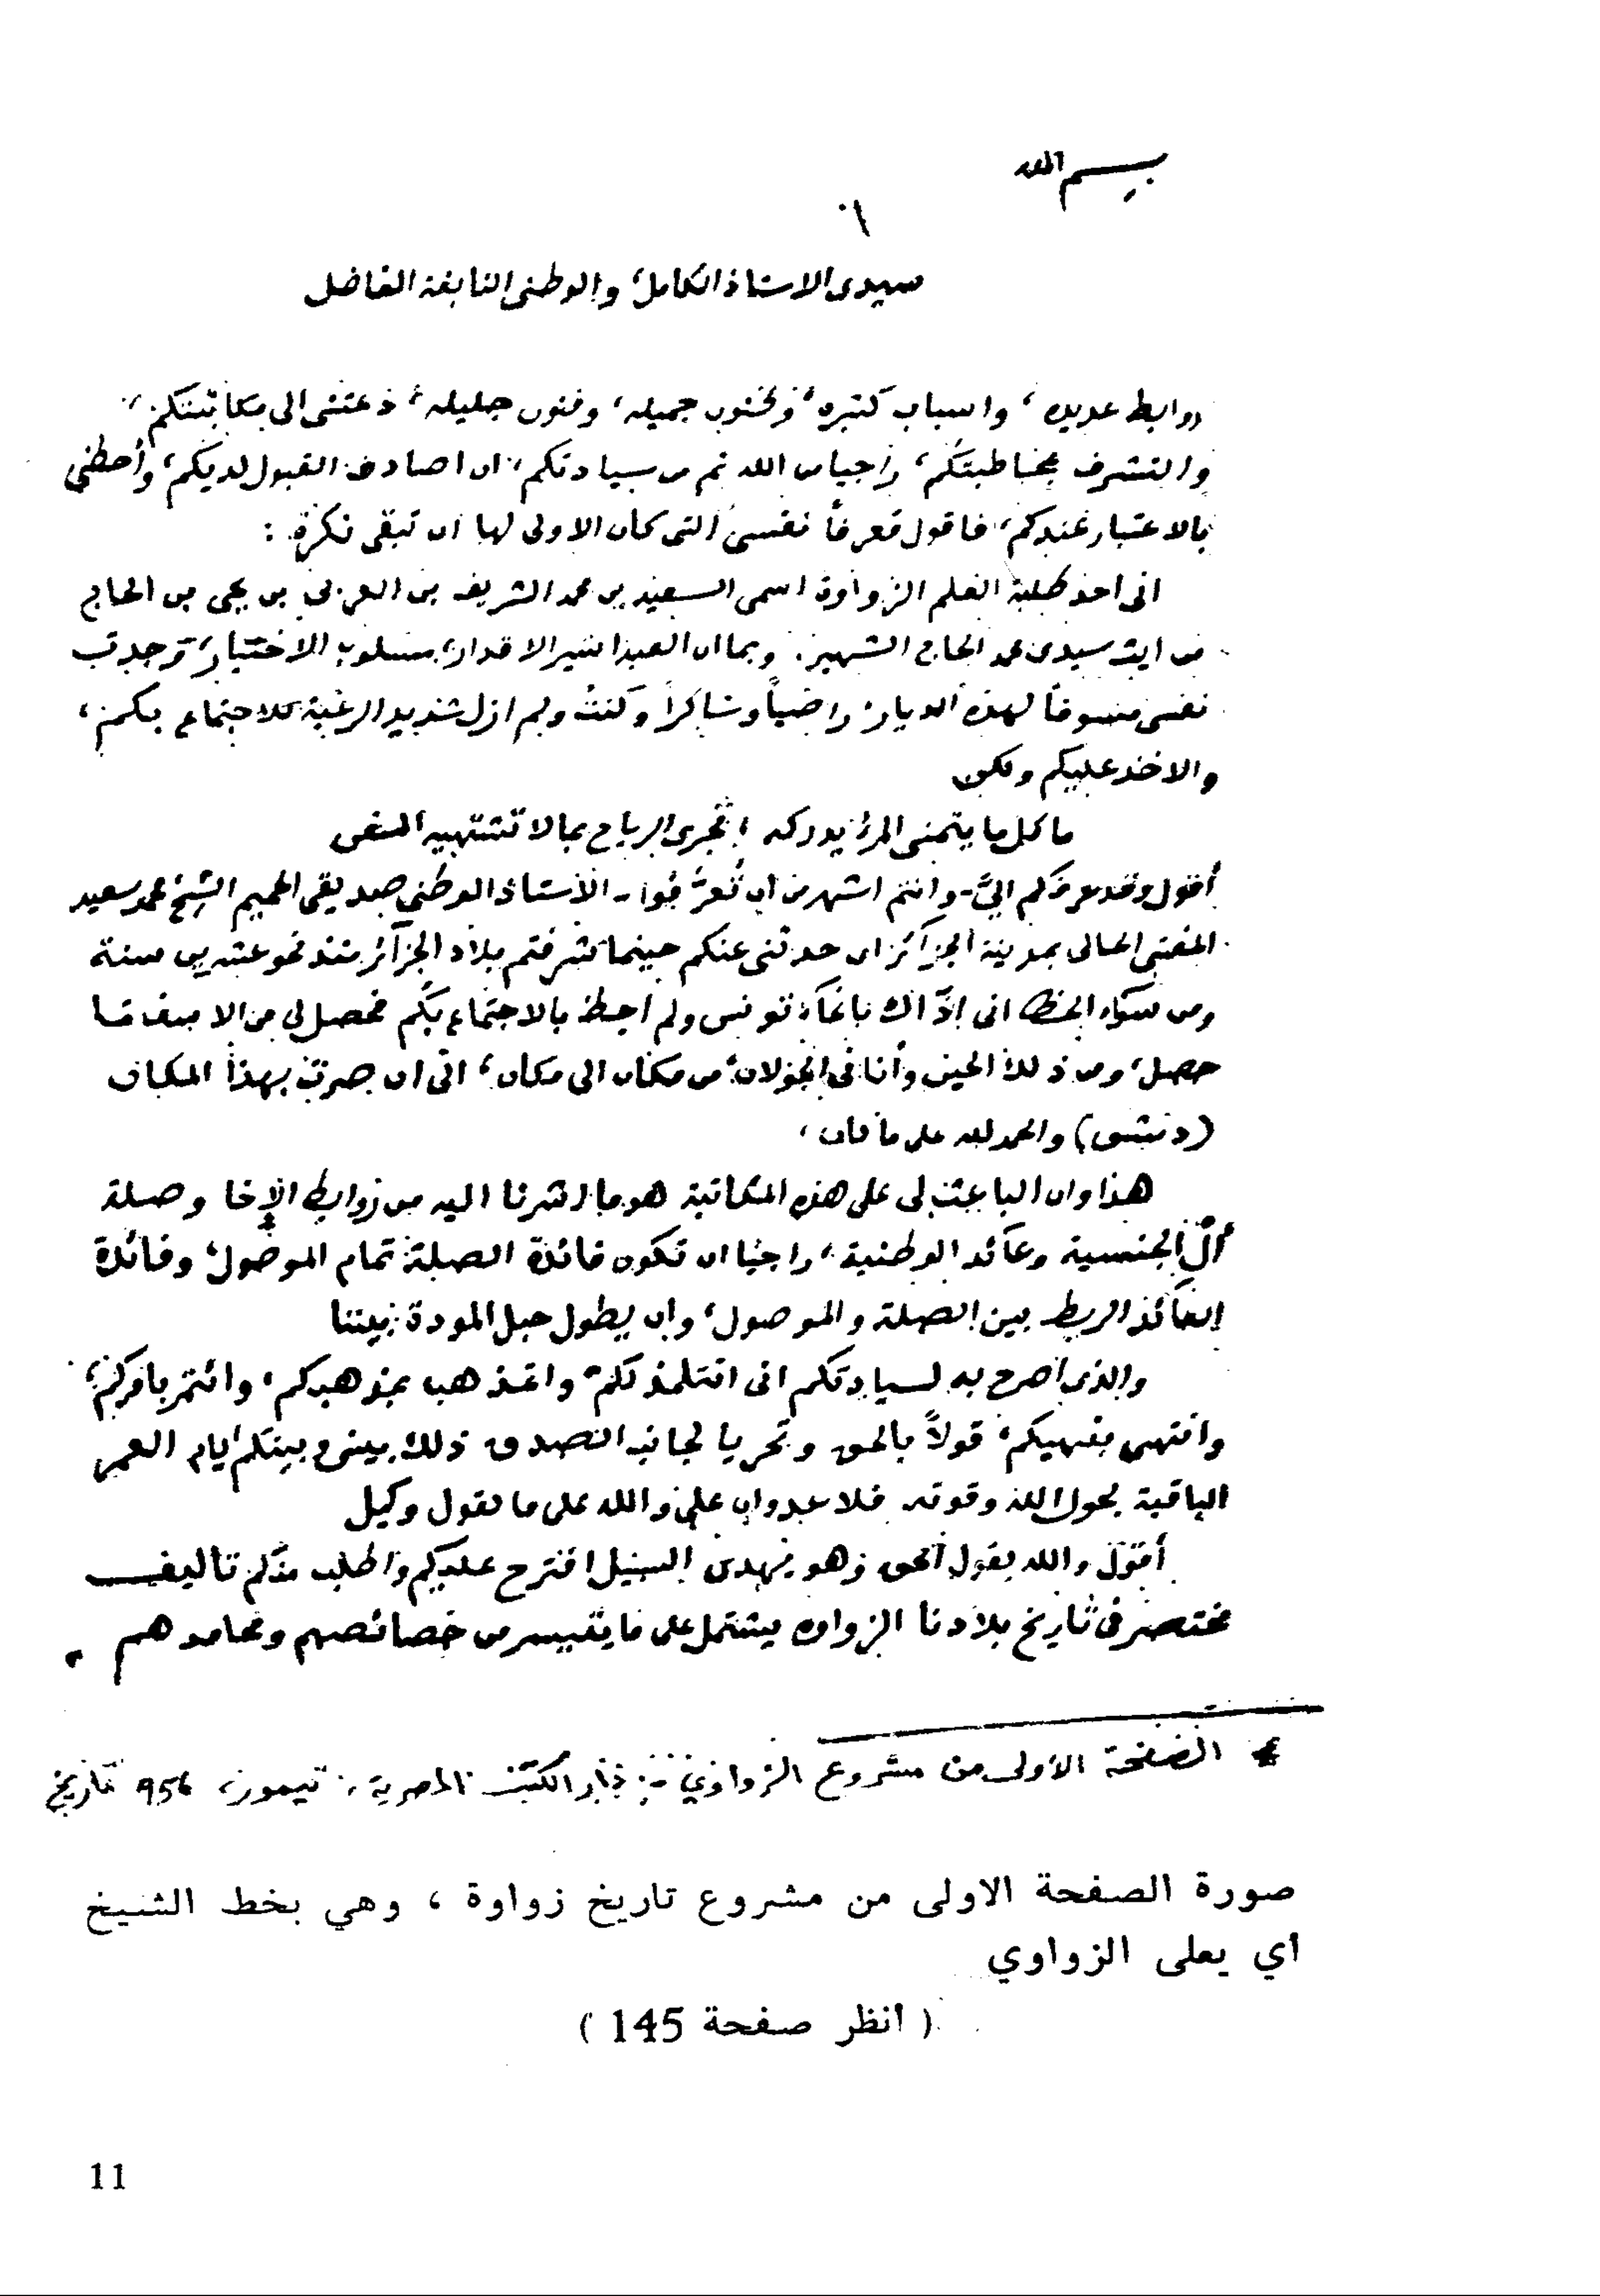 بسم الله
سيدى الاستاذ الكامل، والوطنى النابغة الفاضل
روابط عديده، واسباب كثيره، وشئون جميله، وفنون جليله، دعتنى الى مكاتبتكم،
والتشرف بمخاطبتكم، راجيا من الله ثم من سيادتكم، ان اصادف القبول لديكم، وأحظى
بالاعتبار عندكم، فاقول معرفاً نفسى التى كان الاولى لها ان تبقى نكرة :
انى احد طلبة العلم الزواوة اسمى السعيد بن محمد الشريف بن العربى بن يحي بن الحاج
من ايث سيدى محمد الحاج الشهير. وبما ان العبد اسير الاقدار، مسلوب الاختيار، وجدت
نفسى مسوقاً لهذه الديار، راضياً وشاكراً وكنت ولم ازل شديد الرغبة للاجتماع بكم،
والاخذ عليكم ولكن
ما كل ما يتمنى المرء يدركه ؛ تجرى الرياح بما لا تشتهيه السفن
أقول وقد عرفكم اليّ - وانتم اشهر من أن تُعرَّفوا - الأستاذ الوطنى صديقى الحميم الشيخ محمد سعيد
المفتى الحالى بمدينة الجزائر اى حدثنى عنكم حينما شرفتم بلاد الجزآئر منذ نحو عشرين سنة
ومن سوء الحظ انى إذ ذاك بانحآء تونس ولم احظ بالاجتماع بكم فحصل لي من الاسف ما
حصل، ومن ذلك الحين وأنا فى الجولان، من مكان الى مكان، الى ان صرت بهذا المكان
(دمشق) والحمد لله على ما كان،
هذا وان الباعث لى على هذه المكاتبة هو ما اشرنا اليه من روابط الإخا وصلة
أل الجنسية وعائد الوطنية، راجيا ان تكون فائدة الصلة تمام الموصول، وفائدة
العآئد الربط بين الصلة والموصول، وان يطول حبل المودة بيننا
والذى اصرح به لسيادتكم انى اتتلمذ لكم، واتمذهب بمذهبكم، وائتمر بامركم،
وانتهى بنهيكم، قولاً بالحق وتحريا لجانب الصدق ذلك بينى وبينكم ايام العمر
الباقية بحول الله وقوته فلا عدوان علي والله على ما نقول وكيل
أقول والله يقول الحق وهو يهدى السبيل اقترح عليكم واطلب منكم تأليف
مختصر فى تاريخ بلادنا الزواوه يشتمل على ما تيسر من خصائصهم ومحامدهم
* الصفحة الأولى من مشروع الزواوي : دار الكتب المصرية، تيمور، 956 تاريخ
صورة الصفحة الاولى من مشروع تاريخ زواوة ، وهي بخط الشيخ
أي يعلى الزواوي
( أنظر صفحة 145 )
11